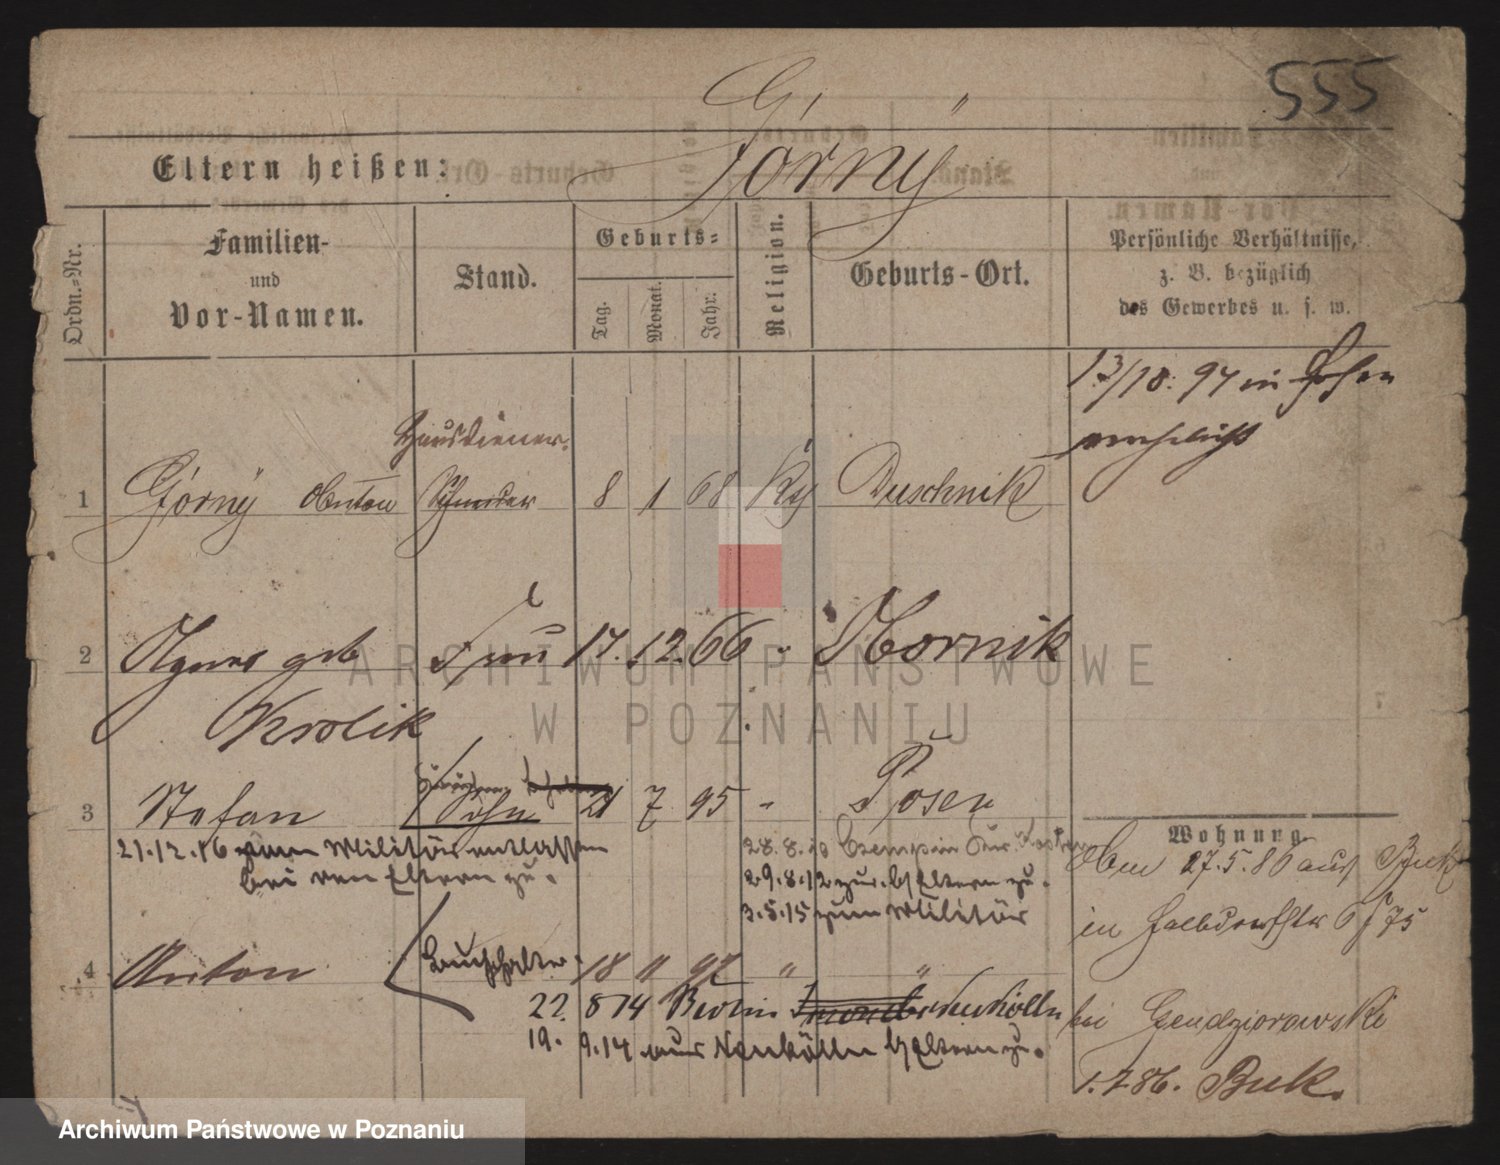 555
Górny
Eltern heißen:
Ordn.-Nr.
Familien-
und
Vor-Namen.
Stand.
Geburts-
Tag.
Monat.
Jahr.
Religion.
Geburts-Ort.
Persönliche Verhältnisse,
z. B. bezüglich
des Gewerbes u. s. w.
in Posen
verehelicht
Hausdiener
1 Górny Anton Schneider 8 1 68 Duschnik
2 Agnes geb Frau 17. 12. 66 " Kornik
Krolik
Lehrling
3 Stefan Sohn 21 7 95 " Posen
21.12.16 vom Militär entlassen
bei den Eltern zu.
28.8.10 Czempin
29.8.12 zur. b/ Eltern zu.
3.5.15 zum Militär
4 Anton Buchhalter 18 11 97 " "
22. 8 14 Berlin Neukölln
19. 9.14 aus Neukölln b/ Eltern zu.
Wohnung
27.5.86 aus Buk
in Halbdorfstr 75
bei Gendziorowski
1.7.86. Buk.
ARCHIWUM PAŃSTWOWE
W POZNANIU
Archiwum Państwowe w Poznaniu